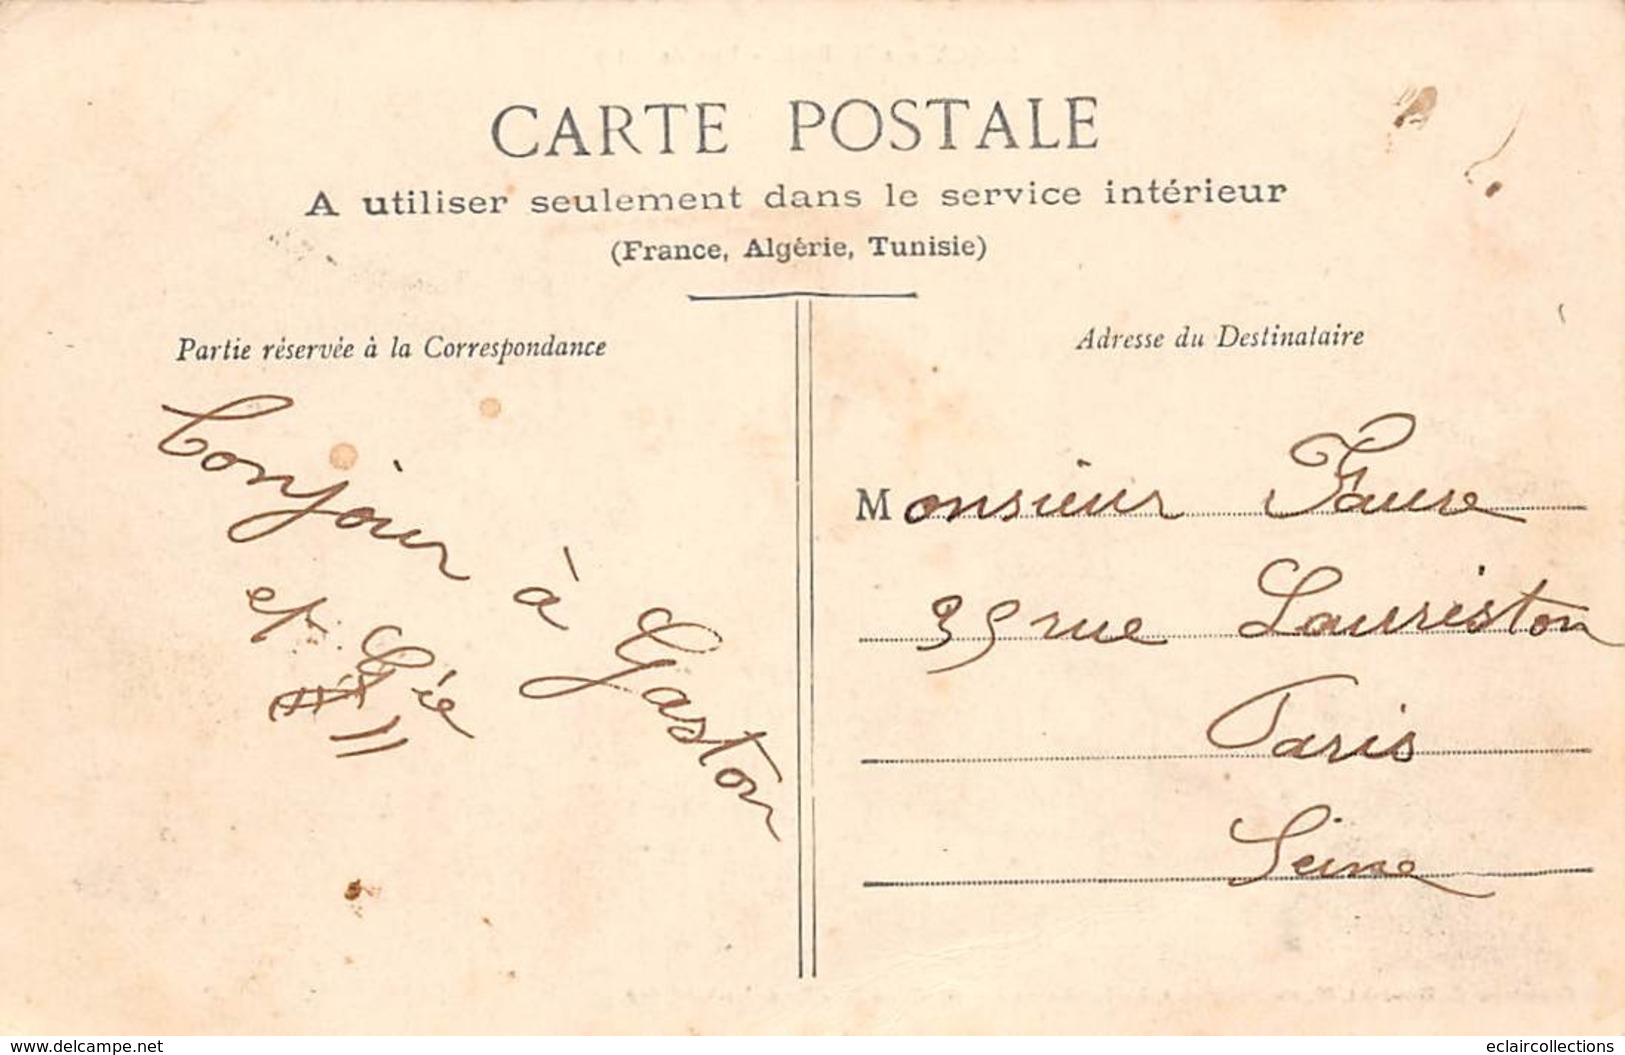 CARTE POSTALE
A utiliser seulement dans le service intérieur
(France, Algérie, Tunisie)
Partie réservée à la Correspondance
Adresse du Destinataire
bonjour à Gaston
et Cie
Monsieur Faure
35 rue Lauriston
Paris
Seine
www.delcampe.net
eclaircollections